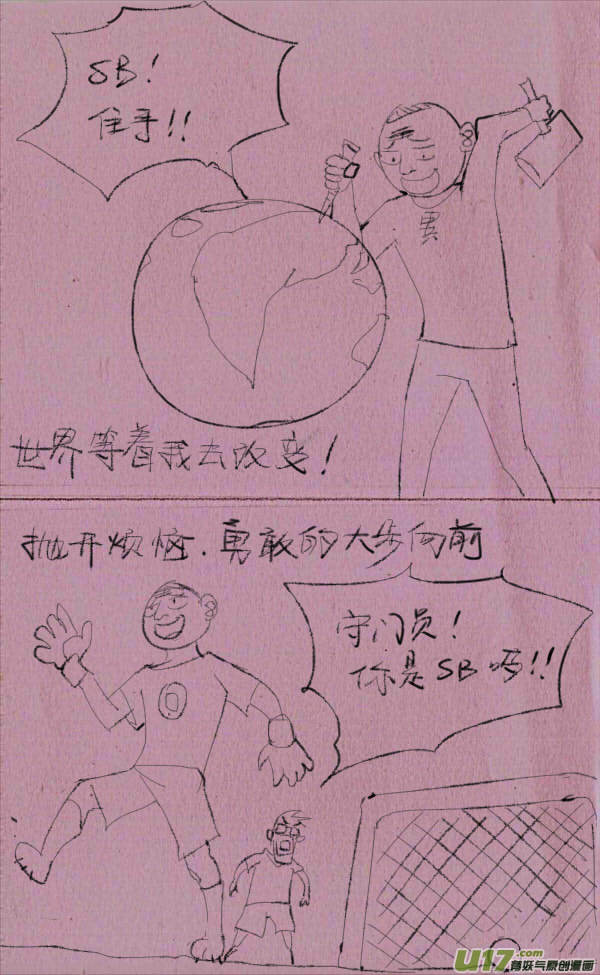 SB!
住手!!
世界等着我去改变!
抛开烦恼.勇敢的大步向前
守门员!
你是SB吗!!
0
U17.com
有妖气原创漫画